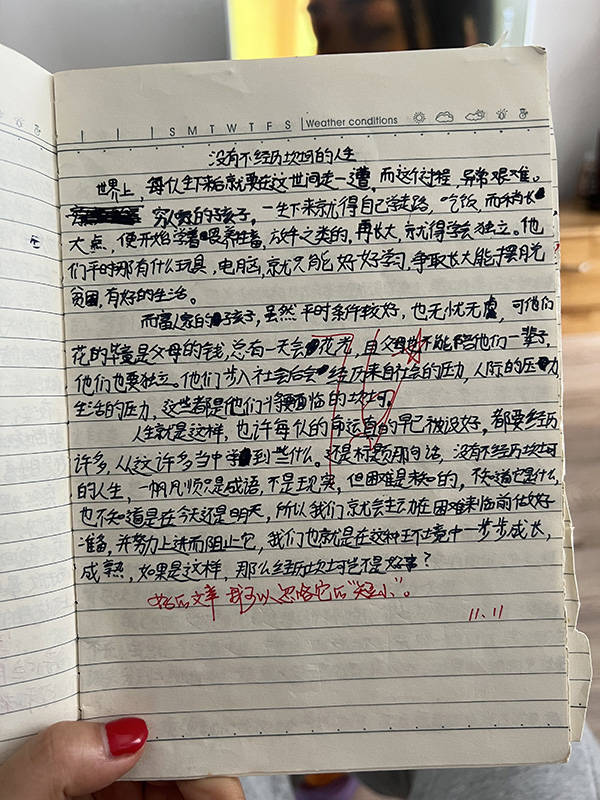 S M T W T F S Weather conditions
没有不经历坎坷的人生
世界上，每个人生下来后就要在这世间走一遭，而这个过程，异常艰难。
穷人家的孩子，一生下来就得自己学走路，吃饭，而稍长
大点，便开始学着喂养牲畜，放牛之类的，再长大，就得学会独立。他
们平时那有什么玩具，电脑，就只能好好学习，争取长大能摆脱
贫困，有好的生活。
而富人家的孩子，虽然平时条件较好，也无忧无虑，可他们
花的毕竟是父母的钱，总有一天会花光，且父母也不能陪他们一辈子，
他们也要独立。他们步入社会后会经历来自社会的压力，人际的压力
生活的压力，这些都是他们将要面临的坎坷。
人生就是这样，也许每个人的命运真的早已被设好，都要经历
许多，从这许多当中学到些什么。还是标题那句话，没有不经历坎坷
的人生，一帆风顺只是成语，不是现实，但困难是未知的，不知道它是什么，
也不知道是在今天还是明天，所以我们就会主动在困难来临前做好
准备，并努力上进而阻止它，我们也就是在这种环境中一步步成长，
成熟，如果是这样，那么经历坎坷岂不是好事？
文章 我可以忽略它的“短小”。
11.11